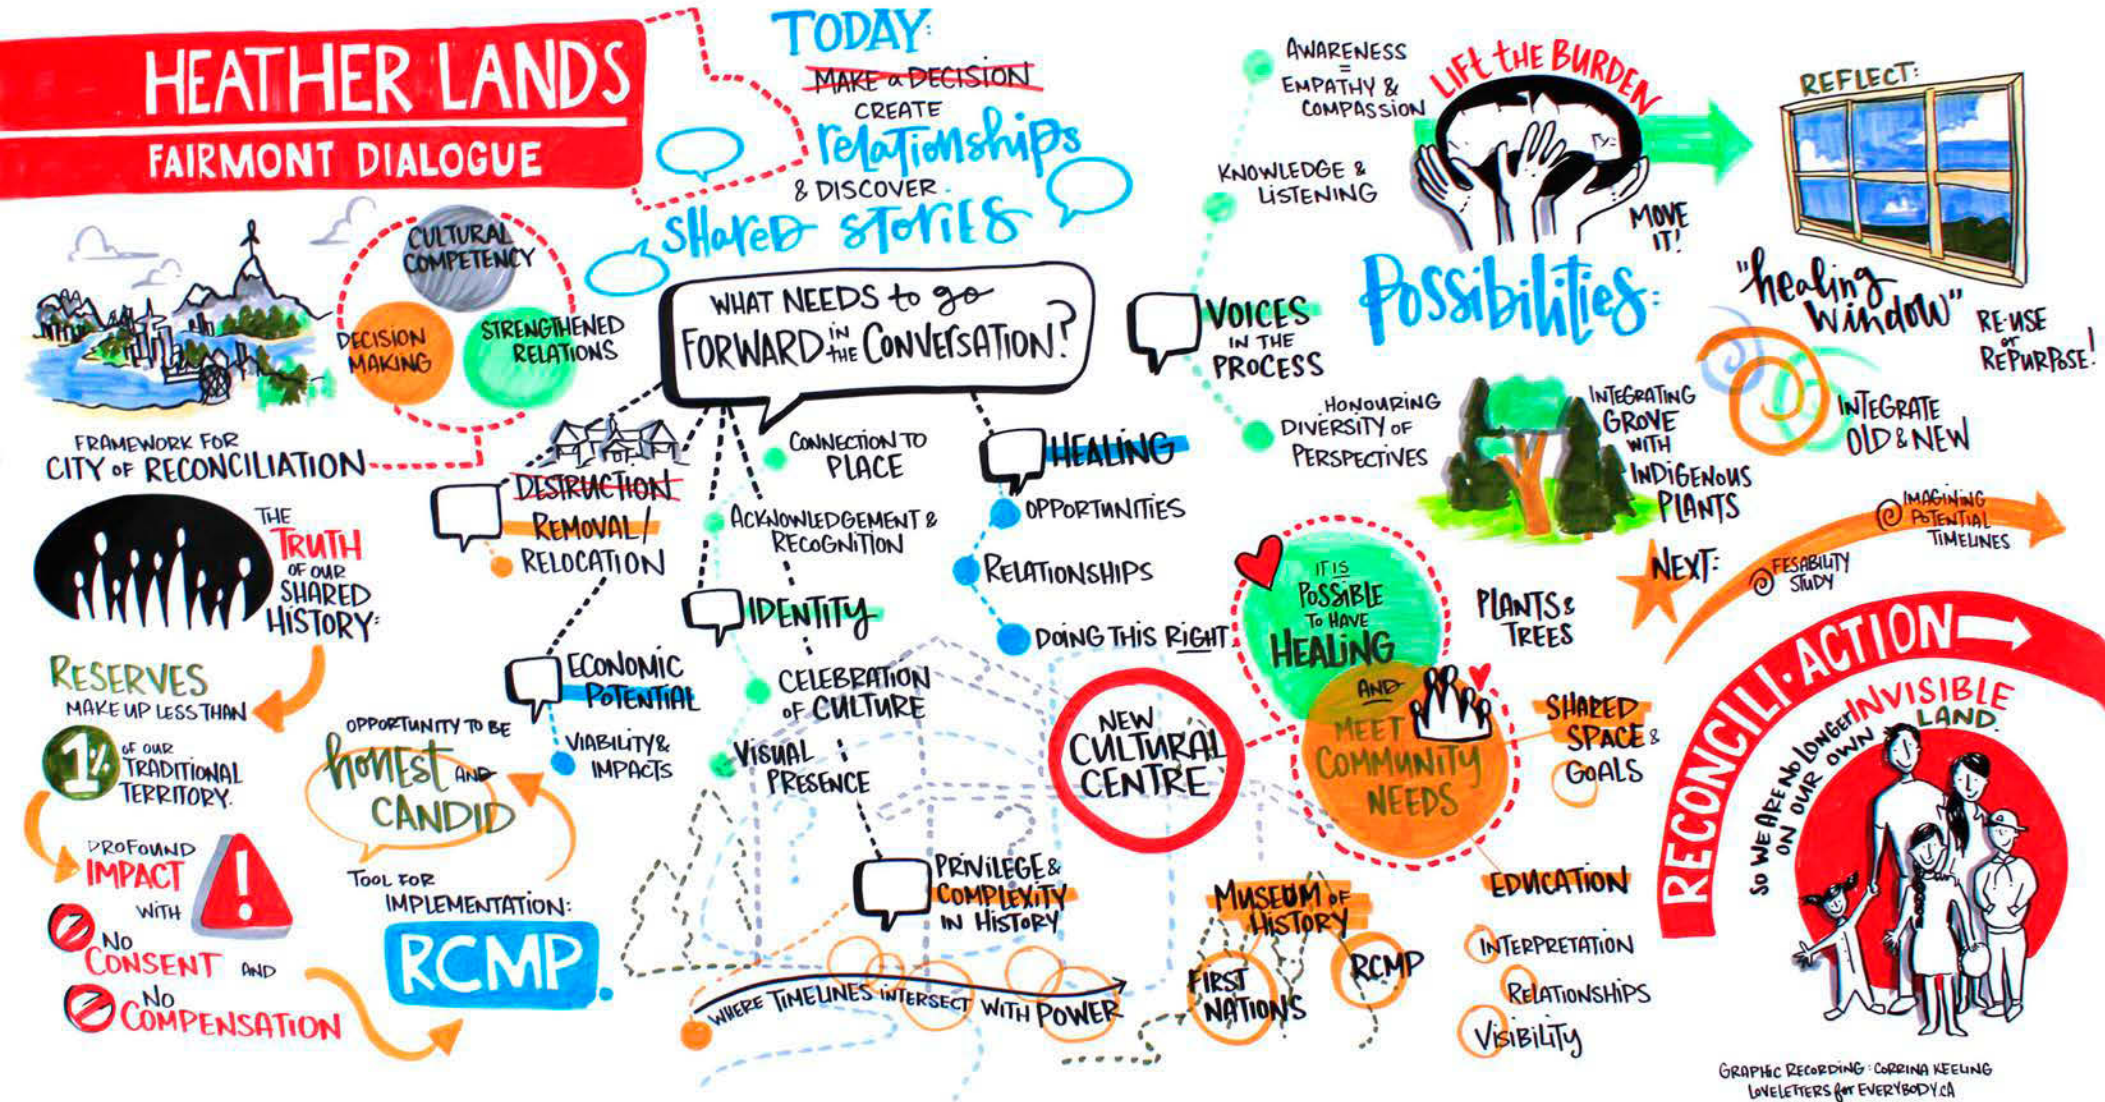 HEATHER LANDS
FAIRMONT DIALOGUE
TODAY:
MAKE a DECISION
CREATE
relationships
& DISCOVER
SHARED STORIES
CULTURAL
COMPETENCY
DECISION
MAKING
STRENGTHENED
RELATIONS
FRAMEWORK FOR
CITY OF RECONCILIATION
THE
TRUTH
OF OUR
SHARED
HISTORY:
RESERVES
MAKE UP LESS THAN
1%
OF OUR
TRADITIONAL
TERRITORY.
PROFOUND
IMPACT
WITH
NO
CONSENT AND
NO
COMPENSATION
OPPORTUNITY TO BE
honest AND
CANDID
TOOL FOR
IMPLEMENTATION:
RCMP.
WHAT NEEDS to go
FORWARD IN THE CONVERSATION?
DESTRUCTION
REMOVAL/
RELOCATION
ECONOMIC
POTENTIAL
VIABILITY &
IMPACTS
CONNECTION TO
PLACE
ACKNOWLEDGEMENT &
RECOGNITION
IDENTITY
CELEBRATION
OF CULTURE
VISUAL
PRESENCE
PRIVILEGE &
COMPLEXITY
IN HISTORY
WHERE TIMELINES INTERSECT WITH POWER
HEALING
OPPORTUNITIES
RELATIONSHIPS
DOING THIS RIGHT
VOICES
IN THE
PROCESS
AWARENESS
=
EMPATHY &
COMPASSION
KNOWLEDGE &
LISTENING
HONOURING
DIVERSITY OF
PERSPECTIVES
LIFT THE BURDEN
MOVE
IT!
Possibilities:
REFLECT:
"healing
window"
RE-USE
or
REPURPOSE!
INTEGRATING
GROVE
WITH
INDIGENOUS
PLANTS
INTEGRATE
OLD & NEW
PLANTS &
TREES
NEXT:
FESABILITY
STUDY
IMAGINING
POTENTIAL
TIMELINES
NEW
CULTURAL
CENTRE
IT IS
POSSIBLE
TO HAVE
HEALING
AND
MEET
COMMUNITY
NEEDS
SHARED
SPACE &
GOALS
EDUCATION
INTERPRETATION
RELATIONSHIPS
VISIBILITY
MUSEUM OF
HISTORY
FIRST
NATIONS
RCMP
RECONCILI·ACTION
SO WE ARE NO LONGER INVISIBLE
ON OUR OWN LAND.
GRAPHIC RECORDING: CORRINA KEELING
LOVELETTERS for EVERYBODY.CA